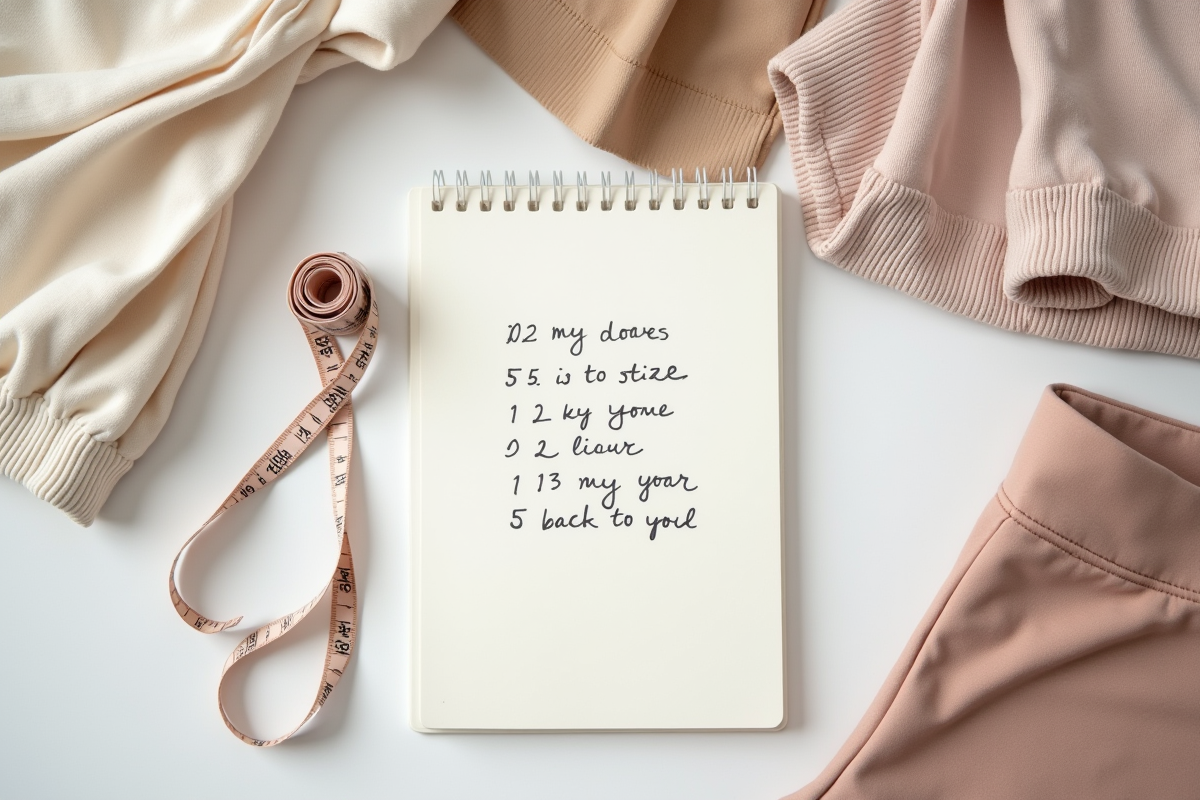 02 my doares
55. is to stize
1 2 ky yome
0 2 liaur
1 13 my yoar
5 back to youl